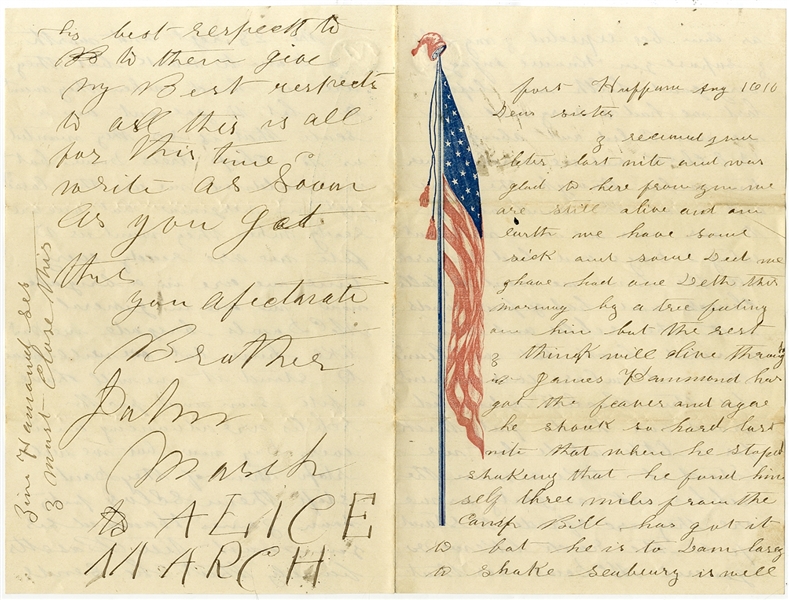 his best respects to
to them give
my Best respects
to all this is all
for this time
write as Soon
as you got
this
you afectorate
Brother
John
March
to ALICE
MARCH
Zim Hamand ses
I must Close this
port Huffman Aug 10 10
Dear sister
I received your
leter last nite and was
glad to here from you we
are still alive and on
earth we have some
sick and some Ded we
ghave had one Deth this
morning by a tree falling
on him but the rest
I think will alive throug
it James Hammond has
got the feaver and agae
he shouk so hard last
nite that when he stoped
shakeing that he fund him
self three miles from the
Camp Bill has got it
to but he is to Dam lasey
to shake seabury is well